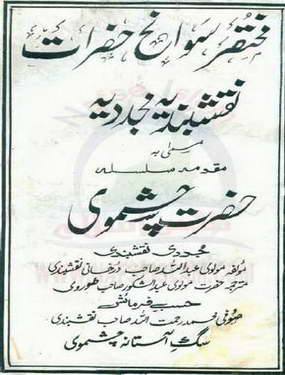 مختصر سوانح حضرات
نقشبندیہ مجددیہ
مسمّٰی بہ
مقدمہ سلسلہ
حضرت چشموی
مجددی نقشبندی
مولفہ مولوی عبداللہ صاحب درخانی نقشبندی
مترجمہ حضرت مولوی عبدالشکور صاحب طوروی
حسب فرمائش
صوفی محمد رحمت اللہ صاحب نقشبندی
سگِ آستانہ چشموی